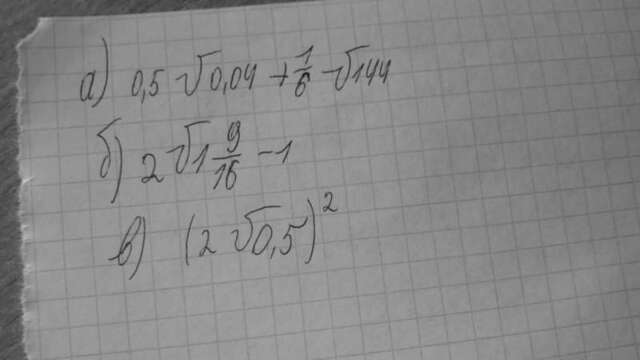 а) 0,5 √0,04 + 1/6 √144
б) 2 √1 9/16 - 1
в) (2 √0,5)²